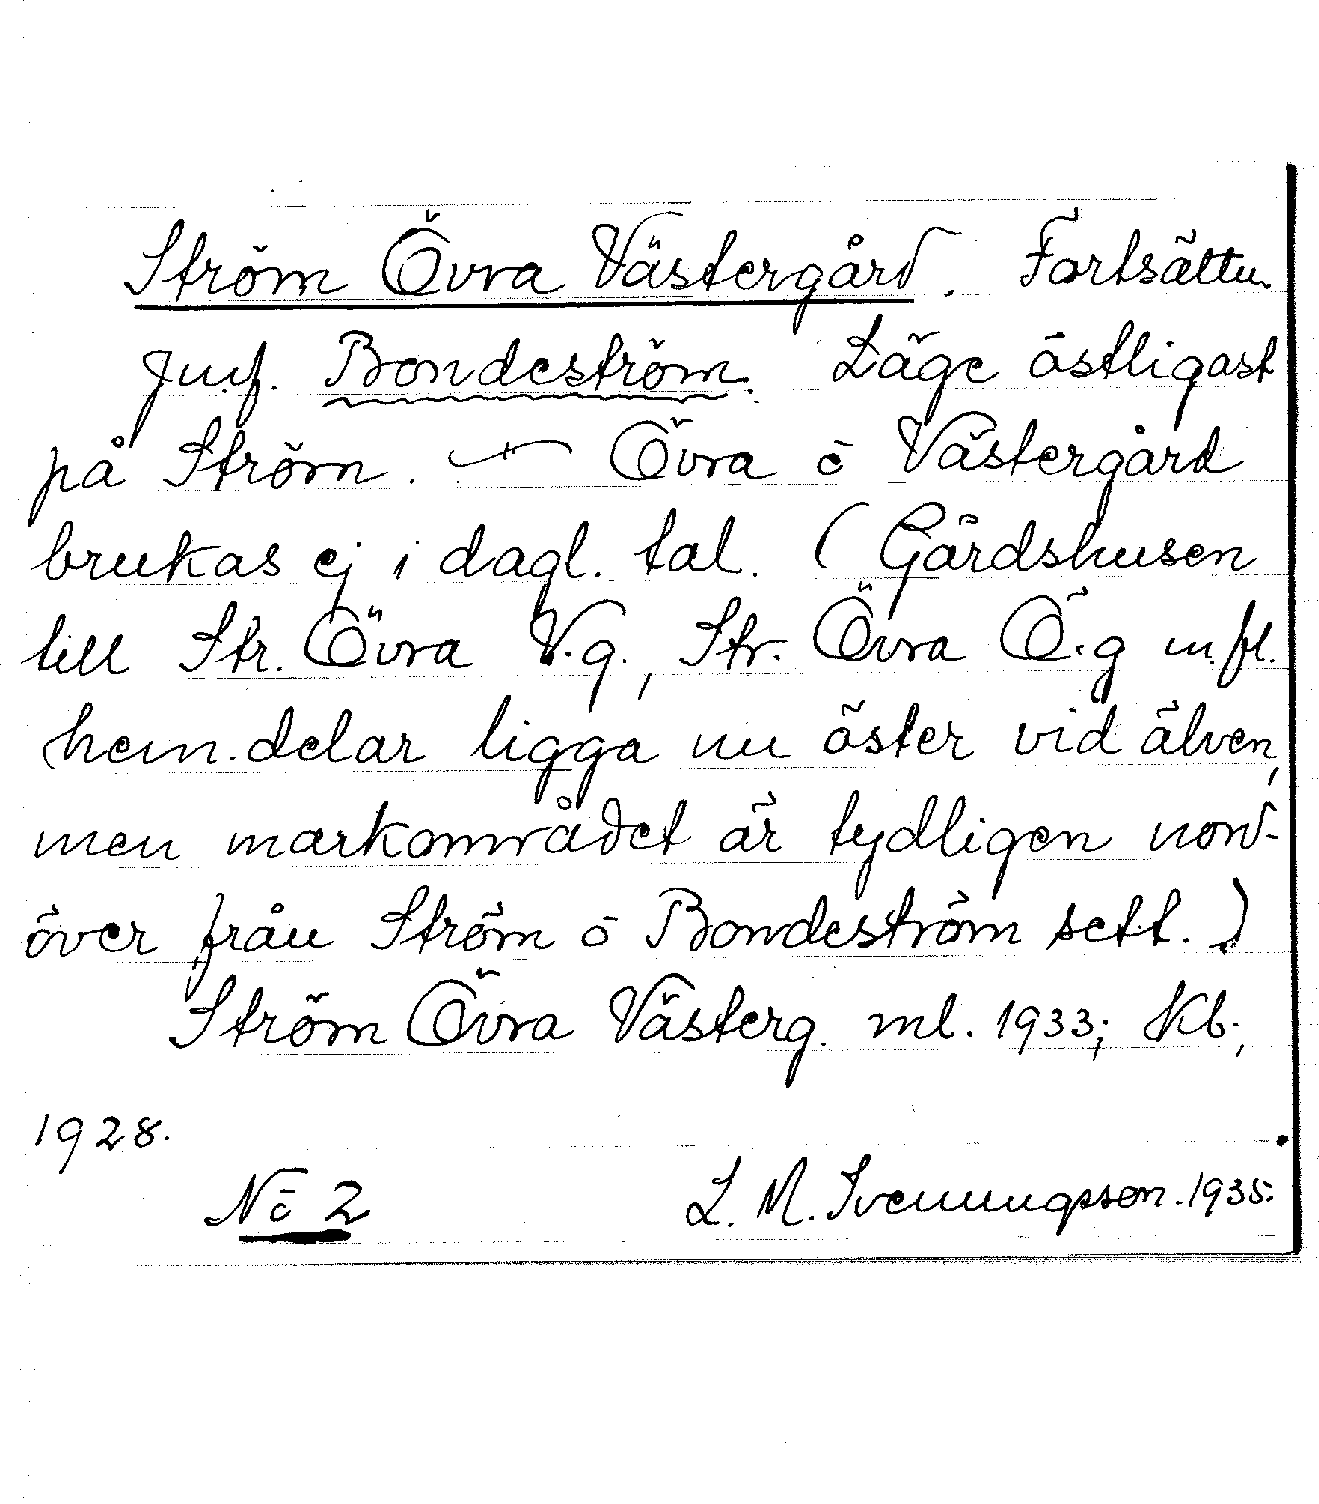 Ström Övra Västergård. Fortsättn.
Jmf. Bondeström. Läge östligast
på Ström. — Övra o Västergård
brukas ej i dagl. tal. (Gårdshusen
till Str. Övra V.g., Str. Övra Ö.g m.fl.
hem.delar ligga nu öster vid älven,
men markområdet är tydligen norr-
över från Ström o Bondeström sett.)
Ström Övra Västerg. ml. 1933; Kb.,
1928.
No 2 L. M. Svenungsson. 1935.